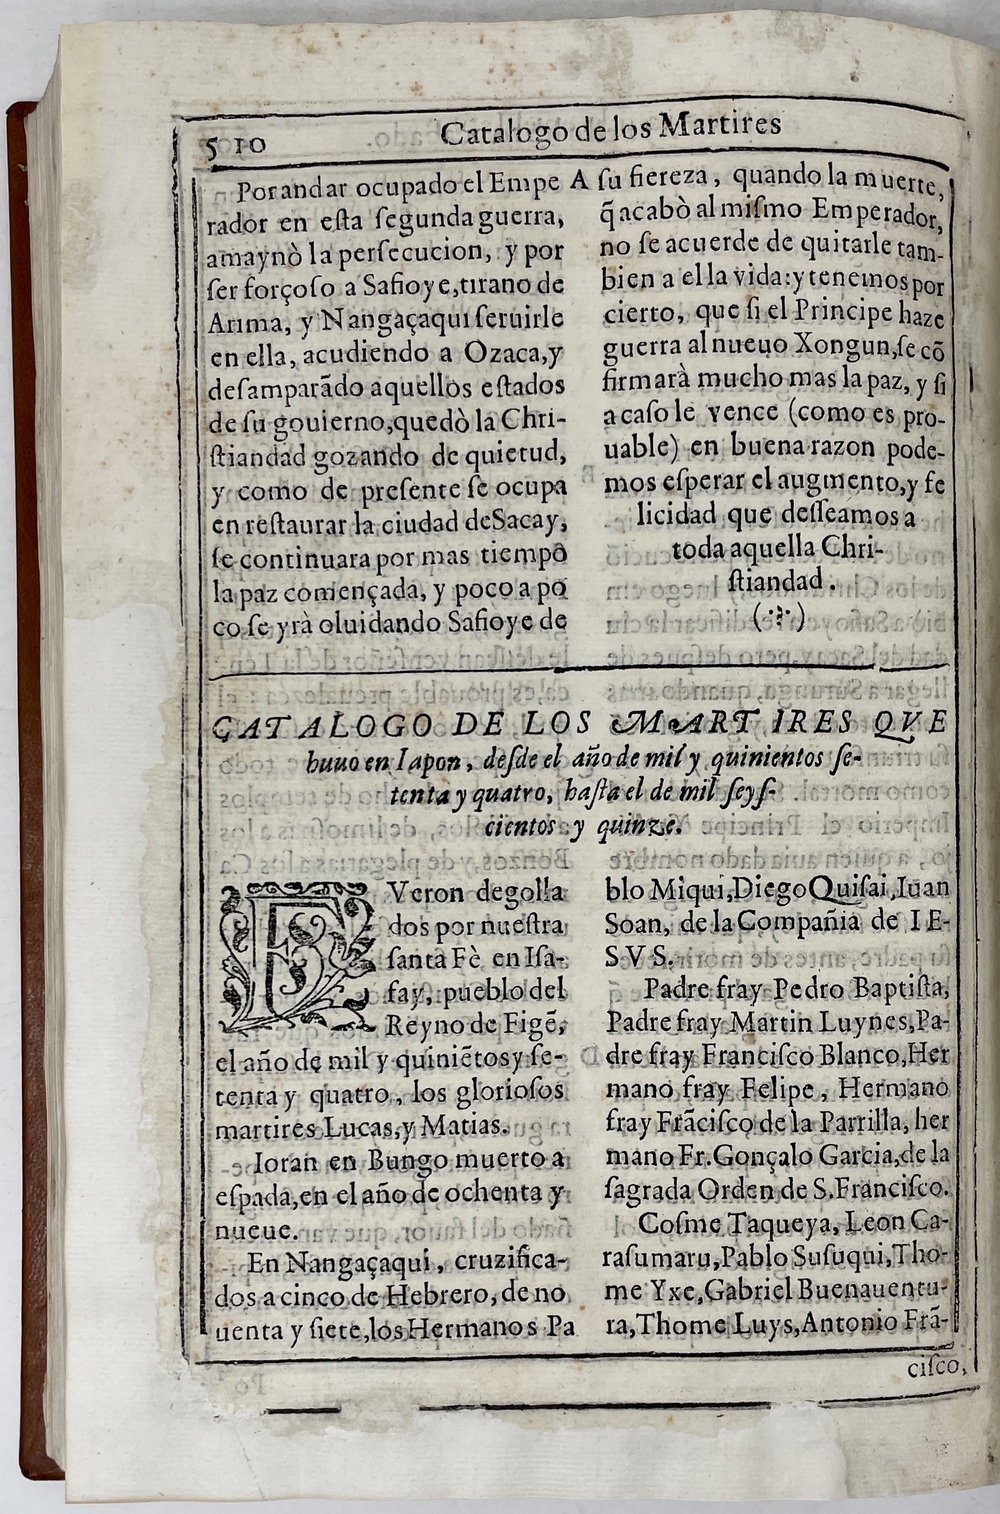 510 Catalogo de los Martires
Por andar ocupado el Empe
rador en eſta ſegunda guerra,
amaynò la perſecucion, y por
ſer forçoſo a Safioye, tirano de
Arima, y Nangaçaqui ſeruirle
en ella, acudiendo a Ozaca, y
deſamparãdo aquellos eſtados
de ſu gouierno, quedò la Chri-
ſtiandad gozando de quietud,
y como de preſente ſe ocupa
en reſtaurar la ciudad de Sacay,
ſe continuara por mas tiempo
la paz començada, y poco a po
co ſe yrà oluidando Safioye de
A
ſu fiereza, quando la muerte,
q̃ acabò al miſmo Emperador,
no ſe acuerde de quitarle tam-
bien a ella vida: y tenemos por
cierto, que ſi el Principe haze
guerra al nueuo Xongun, ſe cõ
firmarà mucho mas la paz, y ſi
a caſo le vence (como es pro-
uable) en buena razon pode-
mos eſperar el augmento, y fe
licidad que deſſeamos a
toda aquella Chri-
ſtiandad.
(∴)
CATALOGO DE LOS MARTIRES QVE
huuo en Iapon, deſde el año de mil y quinientos ſe-
tenta y quatro, haſta el de mil ſeyſ-
cientos y quinze.
FVeron degolla
dos por nueſtra
ſanta Fè en Iſa-
fay, pueblo del
Reyno de Figẽ,
el año de mil y quiniẽtos y ſe-
tenta y quatro, los glorioſos
martires Lucas, y Matias.
Ioran en Bungo muerto a
eſpada, en el año de ochenta y
nueue.
En Nangaçaqui, cruzifica-
dos a cinco de Hebrero, de no
uenta y ſiete, los Hermanos Pa
blo Miqui, Diego Quiſai, Iuan
Soan, de la Compañia de IE-
SVS.
Padre fray Pedro Baptiſta,
Padre fray Martin Luynes, Pa-
dre fray Franciſco Blanco, Her
mano fray Felipe, Hermano
fray Frãciſco de la Parrilla, her
mano Fr. Gonçalo Garcia, de la
ſagrada Orden de S. Franciſco.
Coſme Taqueya, Leon Ca-
raſumaru, Pablo Suſuqui, Tho-
me Yxe, Gabriel Buenauentu-
ra, Thome Luys, Antonio Frã-
ciſco,